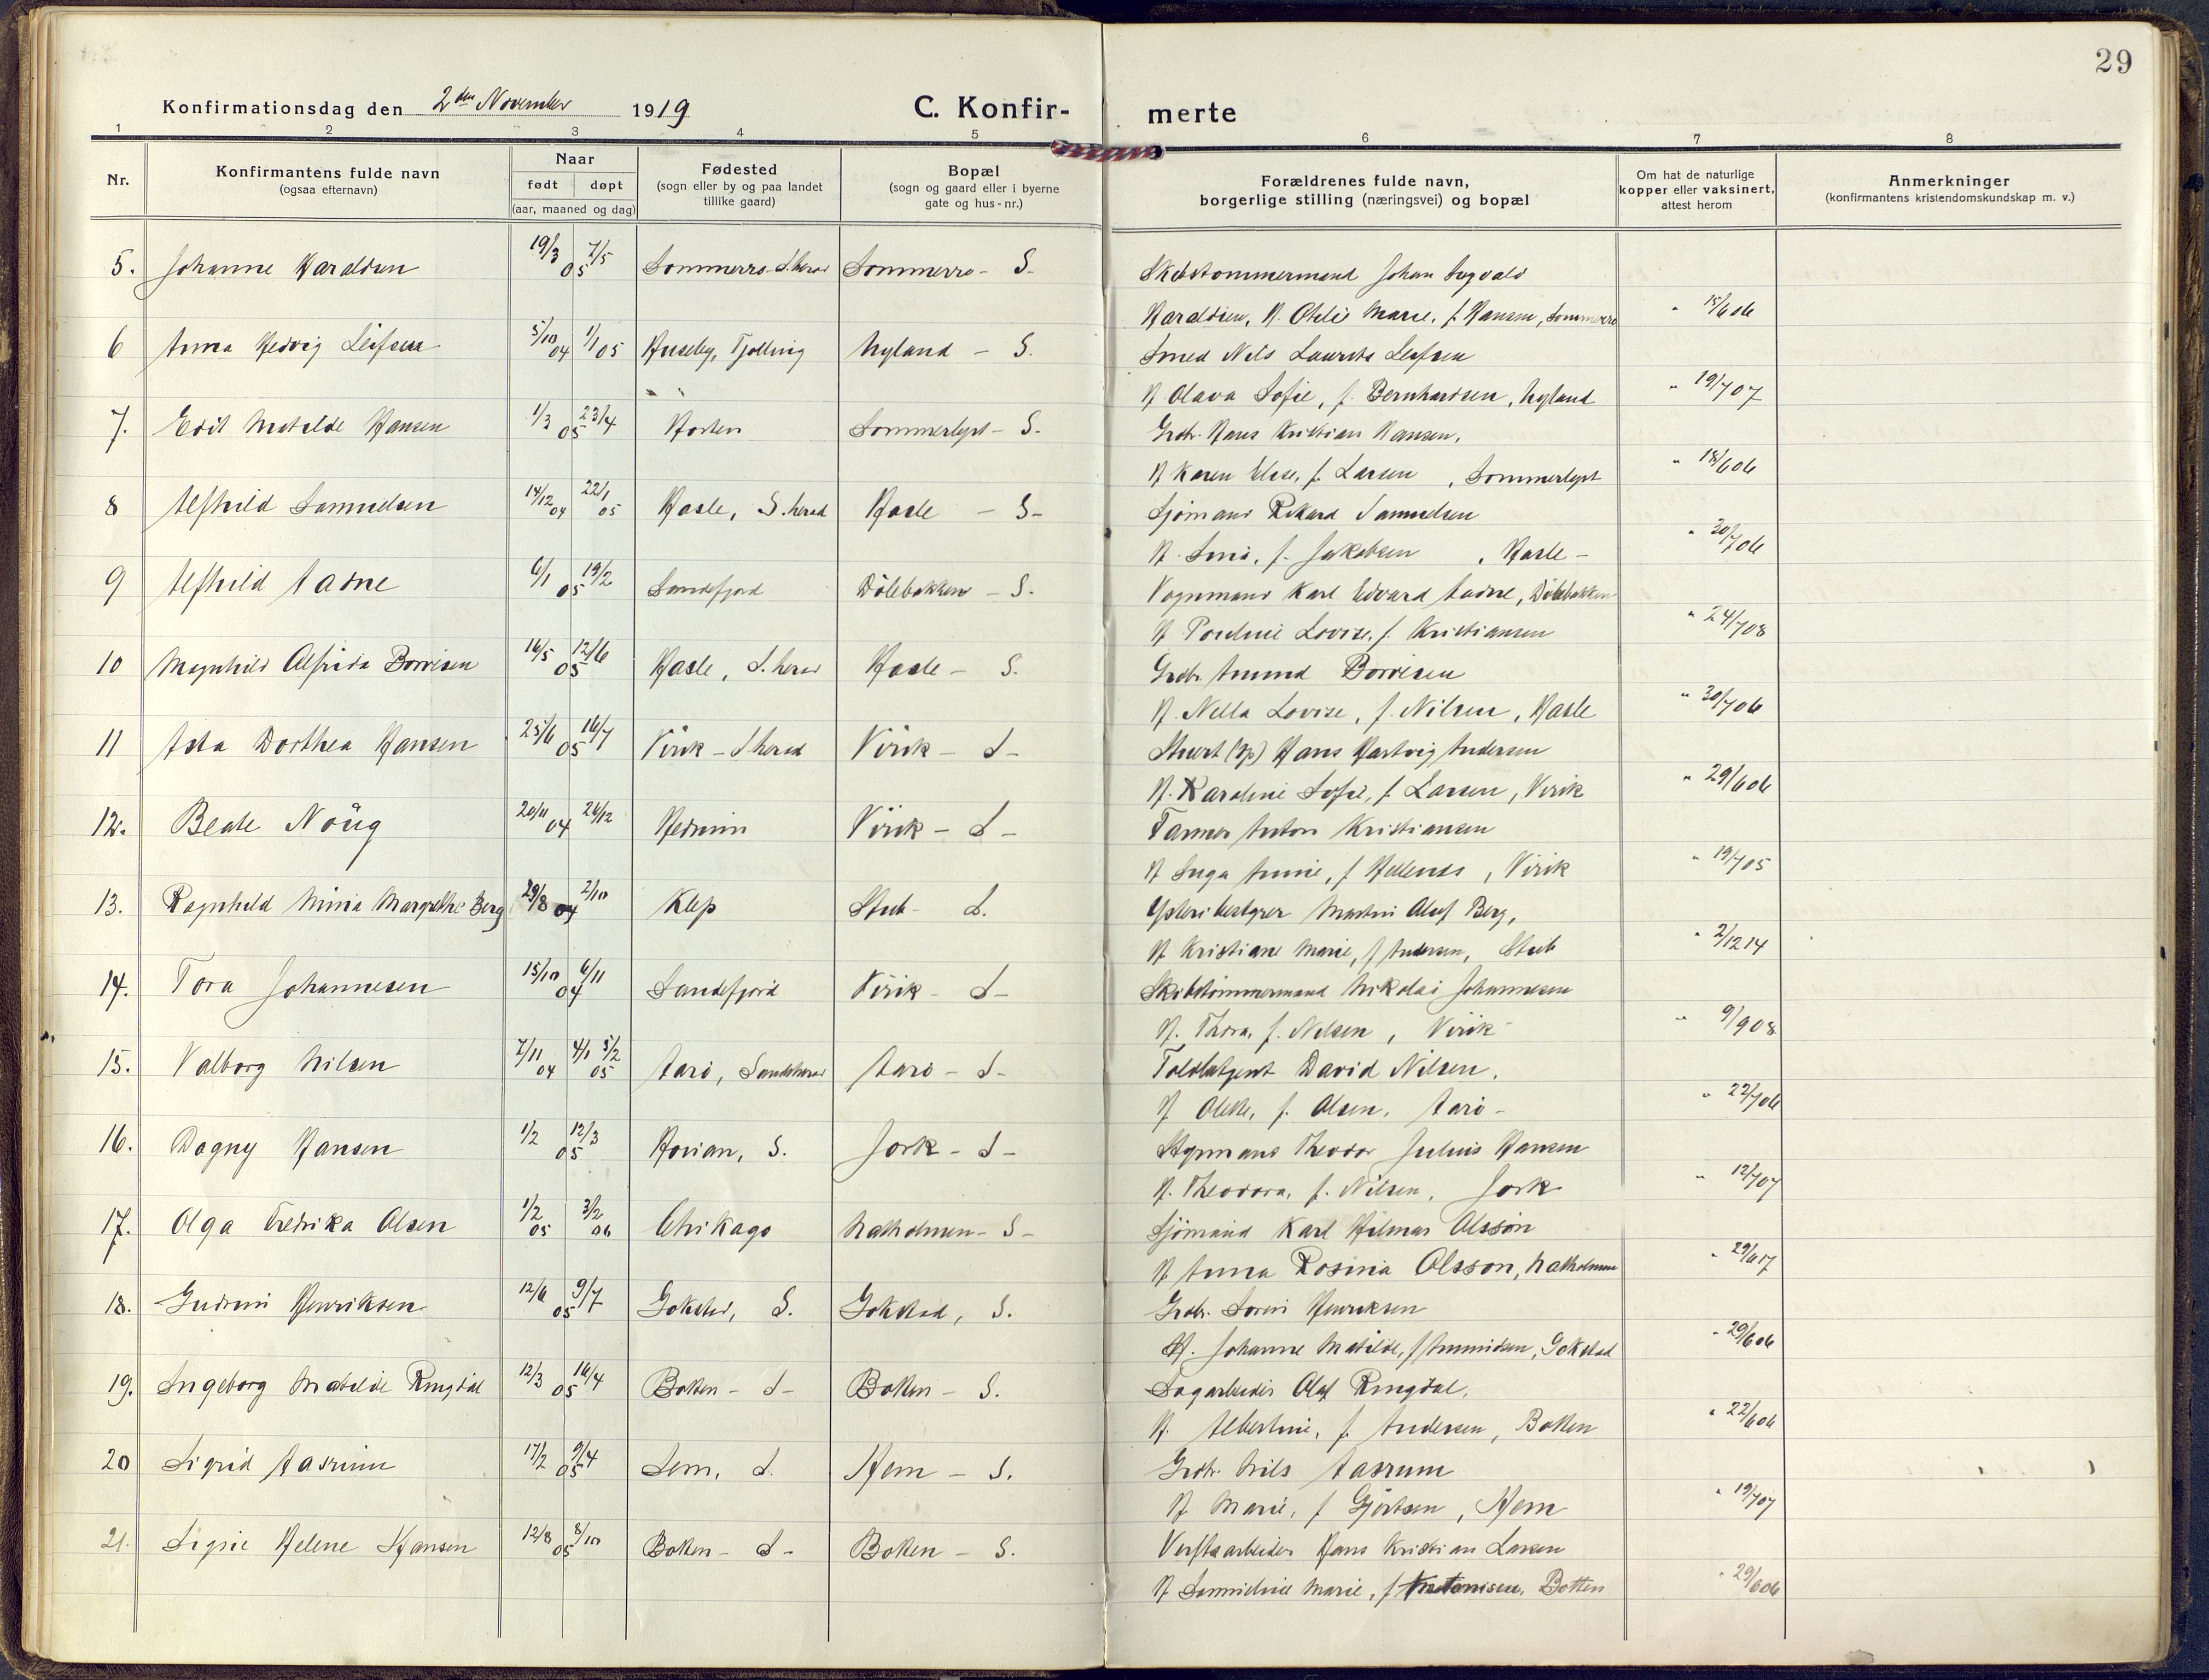 29
Konfirmationsdag den 2den November 1919 C. Konfir- merte
1 2 3 4 5 6 7 8
Nr.
Konfirmantens fulde navn
(ogsaa efternavn)
Naar
født døpt
(aar, maaned og dag)
Fødested
(sogn eller by og paa landet
tillike gaard)
Bopæl
(sogn og gaard eller i byerne
gate og hus-nr.)
Forældrenes fulde navn,
borgerlige stilling (næringsvei) og bopæl
Om hat de naturlige
kopper eller vaksinert,
attest herom
Anmerkninger
(konfirmantens kristendomskundskap m. v.)
5. Johanne Haraldsen 19/3 05 7/5 Sommerro - S.herad Sommerro - S. Skibstømmermand Johan
Haraldsen, H. Marie, f. Hansen, Sommerro " 15/6 06
6 Anna Hedvig Leifsen 5/10 04 1/1 05 Huseby, Tjølling Nyland - S. Smed Nils Laurits Leifsen
H. Olava Sofie, f. Bernhardsen, Nyland " 19/7 07
7. Edit Matilde Hansen 1/3 05 23/4 Horten Sommerlyst - S. Grdbr. Hans Kristian Hansen,
H Karen Elise, f. Larsen, Sommerlyst " 18/6 06
8 Alfhild Samuelsen 14/12 04 22/1 05 Hasle, S.herad Hasle - S- Sjømand Rikard Samuelsen
H. f. Jakobsen, Hasle - " 30/7 06
9 Alfhild Aadne 6/1 05 19/2 Sandefjord Dölebakken - S. Vognmand Karl Edvard Aadne, Dölebakken
H Lovise, f. Kristiansen " 24/7 08
10 Magnhild Alfrida Borvisen 16/5 05 12/6 Hasle, S.herad Hasle - S. Grdbr. Amund Borvisen
H. Nella Lovise, f. Nilsen, Hasle " 30/7 06
11 Asta Dorthea Hansen 25/6 05 16/7 Virik - S herad Virik - S- Stuert Hans Hartvig Andersen
H. Karoline Sofie, f. Larsen, Virik " 29/6 06
12. Beate Nöug 20/11 04 26/12 Hedrum Virik - S- Anton Kristiansen
H Inga Annie, f , Virik " 19/7 05
13. Ragnhild Minia Margrethe Berg 29/8 04 2/10 Klep Stub - S. Martin Olaf Berg,
H Kristiane Marie, f Andersen, Stub " 2/12 14
14. Tora Johannesen 15/10 04 6/11 Sandefjord Virik - S- Skibstömmermand Nikolai Johannesen
H. Thora, f. Nilsen, Virik - " 9/9 08
15. Valborg Nilsen 7/11 04 4/1 5/2 05 Aarö, Sandeherad Aarö - S- David Nilsen.
H f. Olsen, Aarö - " 22/7 06
16. Dagny Hansen 1/2 05 12/3 S. Jork - S- Styrmand Theodor Julius Hansen
H. Theodora, f. Nilsen, Jork " 12/7 07
17. Olga Fredrika Olsen 1/2 05 3/2 06 Chikago Natholmen - S- Sjömand Karl Hilmar Olsson
H Anna Rosina Olsson, Natholmen " 29/6 17
18. Gudrun Henriksen 12/6 05 9/7 Gokstad, S. Gokstad, S. Grdbr. Soren Henriksen
H. Johanne Matilde, f Amundsen, Gokstad " 29/6 06
19. Ingeborg Matilde Ringdal 12/3 05 16/4 Botten - S- Botten - S. Sagarbeider Olaf Ringdal,
H. Albertine, f. Andersen, Botten " 22/6 06
20 Sigrid Aasrum 17/2 05 9/4 Hem, S. Hem - S. Grdbr. Nils Aasrum
H Marie, f Gjertsen, Hem " 19/7 07
21. Signe Helene Hansen 12/8 05 8/10 Botten - S- Botten - S. Verftsarbeider Hans Kristian Larsen
H Marie, f Antonisen, Botten " 29/6 06